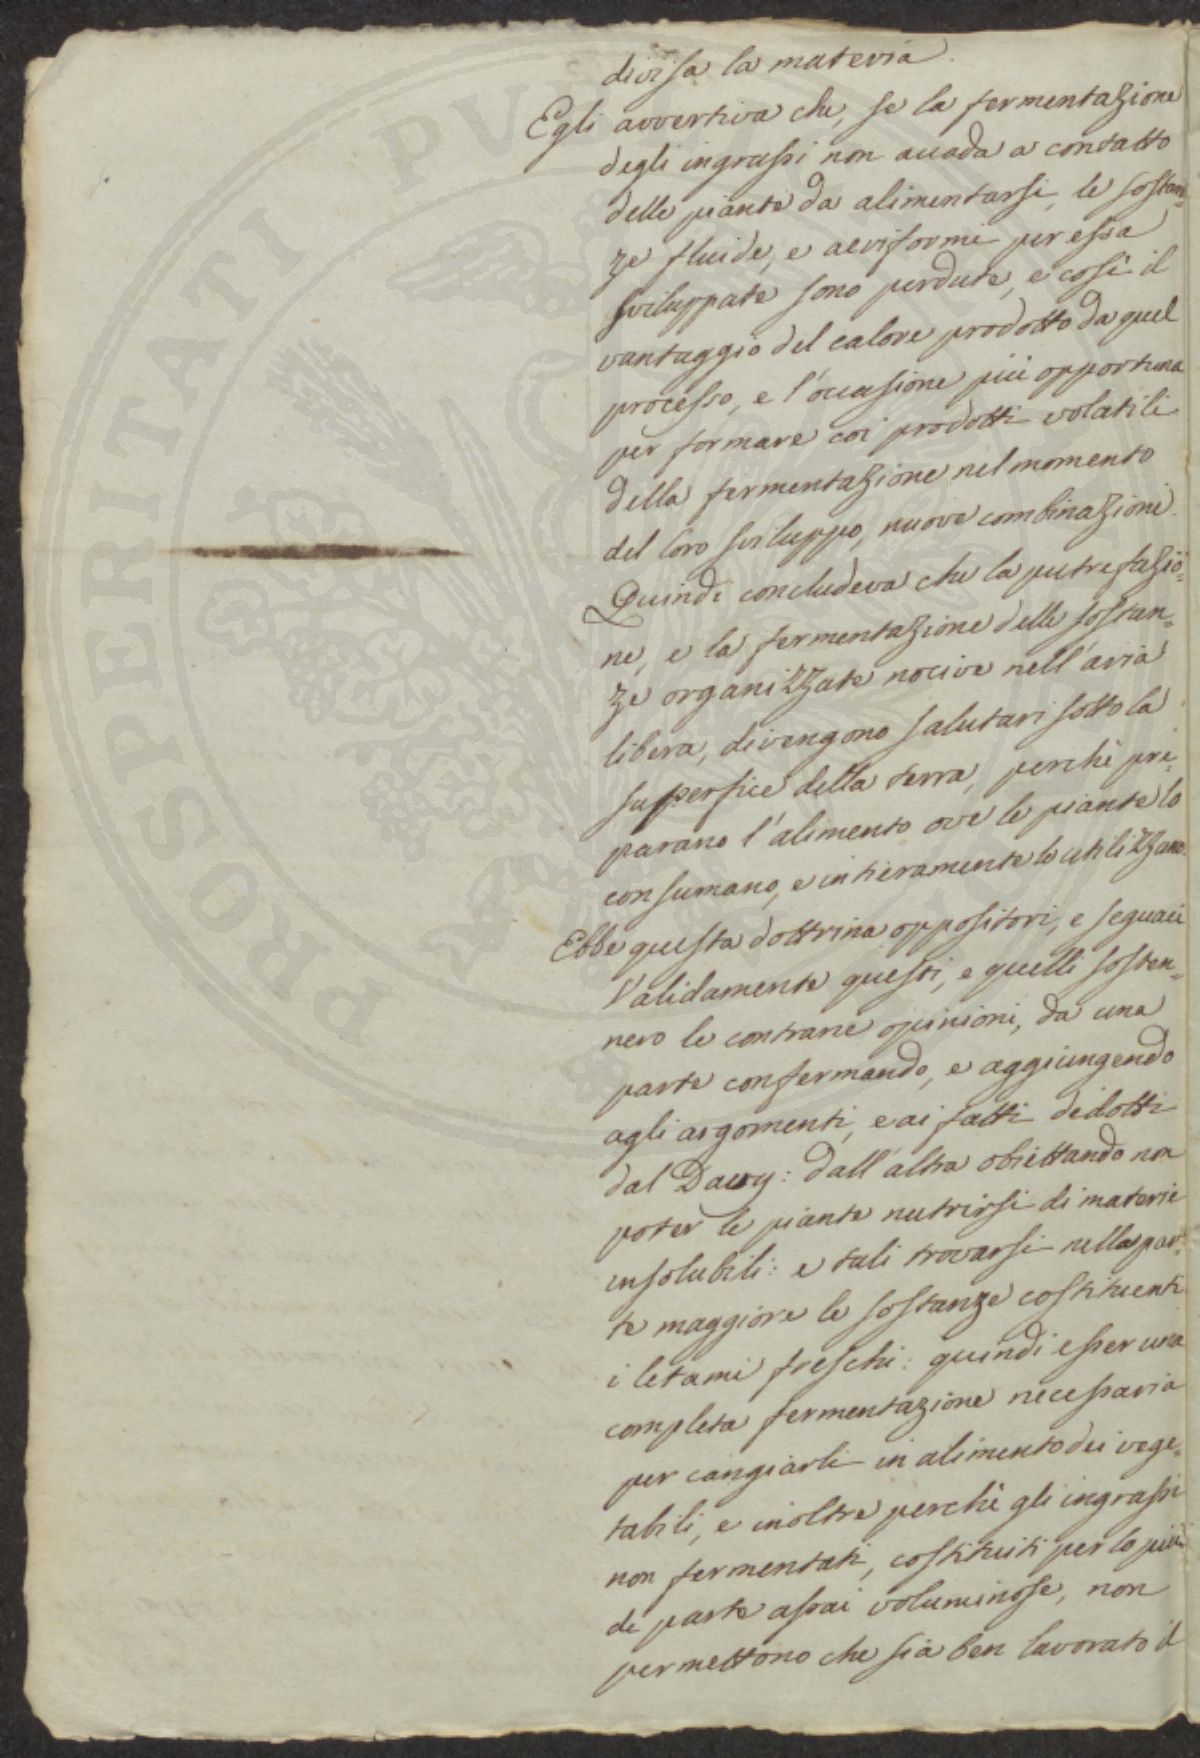 divisa la materia.
Egli avvertiva che, se la fermentazione
degli ingrassi non accada a contatto
delle piante da alimentarsi, le sostan=
ze fluide, e aeriformi per essa
sviluppate sono perdute, e così il
vantaggio del calore prodotto da quel
processo, e l'occasione più opportuna
per formare coi prodotti volatili
della fermentazione nel momento
del loro sviluppo, nuove combinazioni.
Quindi concludeva che la putrefazio=
ne, e la fermentazione delle sostan=
ze organizzate nocive nell'aria
libera, divengono salutari sotto la
superfice della terra, perchè pre=
parano l'alimento ove le piante lo
consumano, e intieramente lo utilizzano.
Ebbe questa dottrina oppositori, e seguaci
Validamente questi, e quelli sosten=
nero le contrarie opinioni, da una
parte confermando, e aggiungendo
agli argomenti, e ai fatti dedotti
dal Davy: dall'altra obiettando non
poter le piante nutrirsi di materie
insolubili: e tali trovarsi nella par=
te maggiore le sostanze costituenti
i letami freschi: quindi esser una
completa fermentazione necessaria
per cangiarli in alimento dei vege=
tabili, e inoltre perchè gli ingrassi
non fermentati, costituiti per lo più
di parte assai voluminose, non
permettono che sia ben lavorato il
PROSPERITATI PUBL